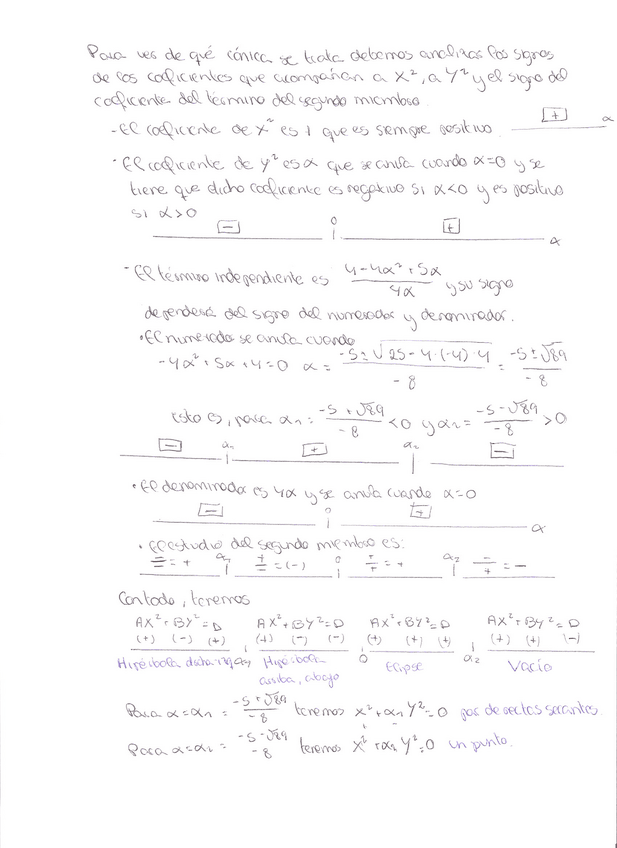 Para ver de qué cónica se trata debemos analizar los signos
de los coeficientes que acompañan a X², a Y² y el signo del
coeficiente del término del segundo miembro.
- El coeficiente de x² es 1 que es siempre positivo. + α
· El coeficiente de y² es α que se anula cuando α=0 y se
tiene que dicho coeficiente es negativo si α<0 y es positivo
si α>0
- 0 + α
- El término independiente es (4-4α²+5α)/(4α) y su signo
dependerá del signo del numerador y denominador.
· El numerador se anula cuando
-4α²+5α+4=0 α = (-5±√(25-4·(-4)·4))/(-8) = (-5±√89)/(-8)
Esto es, para α₁ = (-5+√89)/(-8) <0 y α₂ = (-5-√89)/(-8) >0
- α₁ + α₂ -
· El denominador es 4α y se anula cuando α=0
- 0 + α
· El estudio del segundo miembro es:
-/- = + α₁ +/- = (-) 0 +/+ = + α₂ -/+ = -
Con todo, tenemos
AX²+BY²=D AX²+BY²=D AX²+BY²=D AX²+BY²=D
(+) (-) (+) (+) (-) (-) (+) (+) (+) (+) (+) (-)
Hipérbola dcha-izq α₁ Hipérbola 0 Elipse α₂ Vacío
arriba, abajo
Para α=α₁ = (-5+√89)/(-8) tenemos x²+α₁Y²=0 par de rectas secantes.
Para α=α₂ = (-5-√89)/(-8) tenemos X²+α₂Y²=0 un punto.